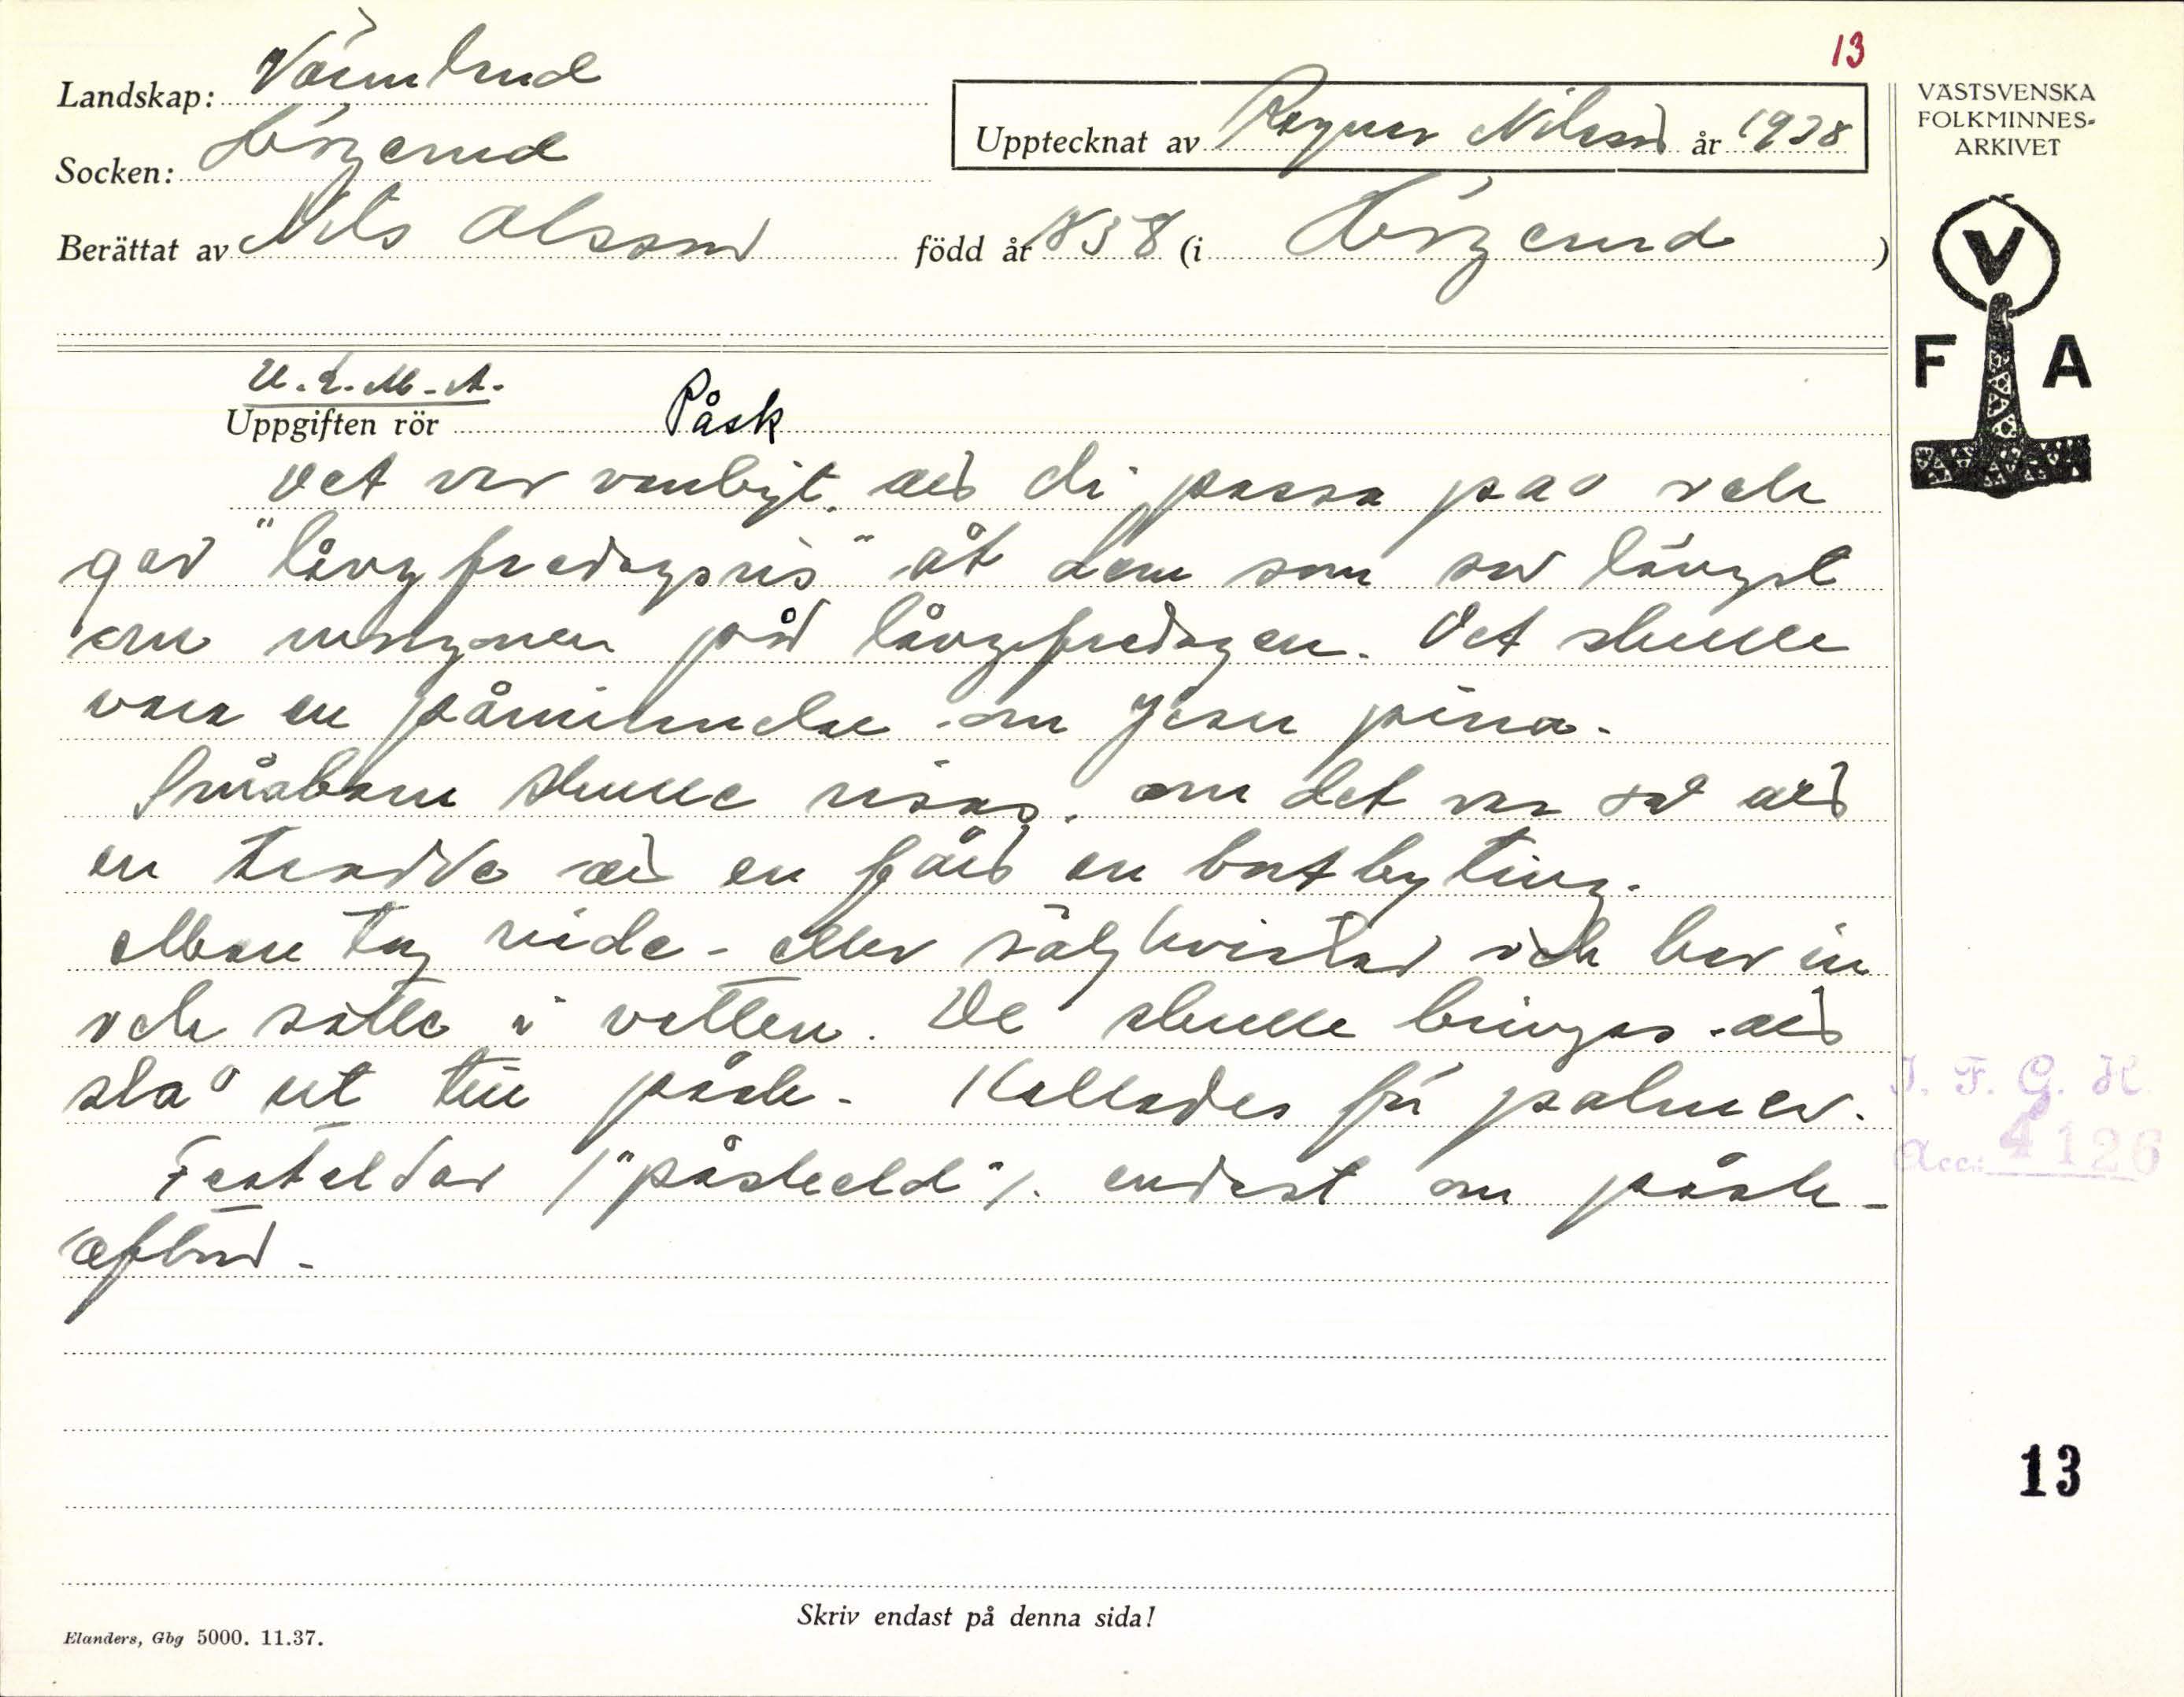 13
Landskap: Värmland
Socken: Högerud
Upptecknat av Ragnar Nilsson år 1938
Berättat av Nils Olsson född år 1858 (i Högerud)
VÄSTSVENSKA
FOLKMINNES-
ARKIVET
V
F A
U.L.M.A.
Uppgiften rör Påsk
Det var vanligt att di passa på och
gav "långfredagsris" åt dem som sov längst
om morgonen på långfredagen. Det skulle
vara en påminnelse om Jesu pina.
Småbarn skulle risas, om det var så att
en trodde att en fått en bortbyting.
Man tog vide- eller sälgkvistar och bar in
och satte i vatten. De skulle bringas att
slå ut till påsk. Kallades för palmer.
Fasteldar /"påskeeld"/. endast om påsk-
afton.
I. F. G. H.
Acc: 4126
13
Skriv endast på denna sida!
Elanders, Gbg 5000. 11.37.